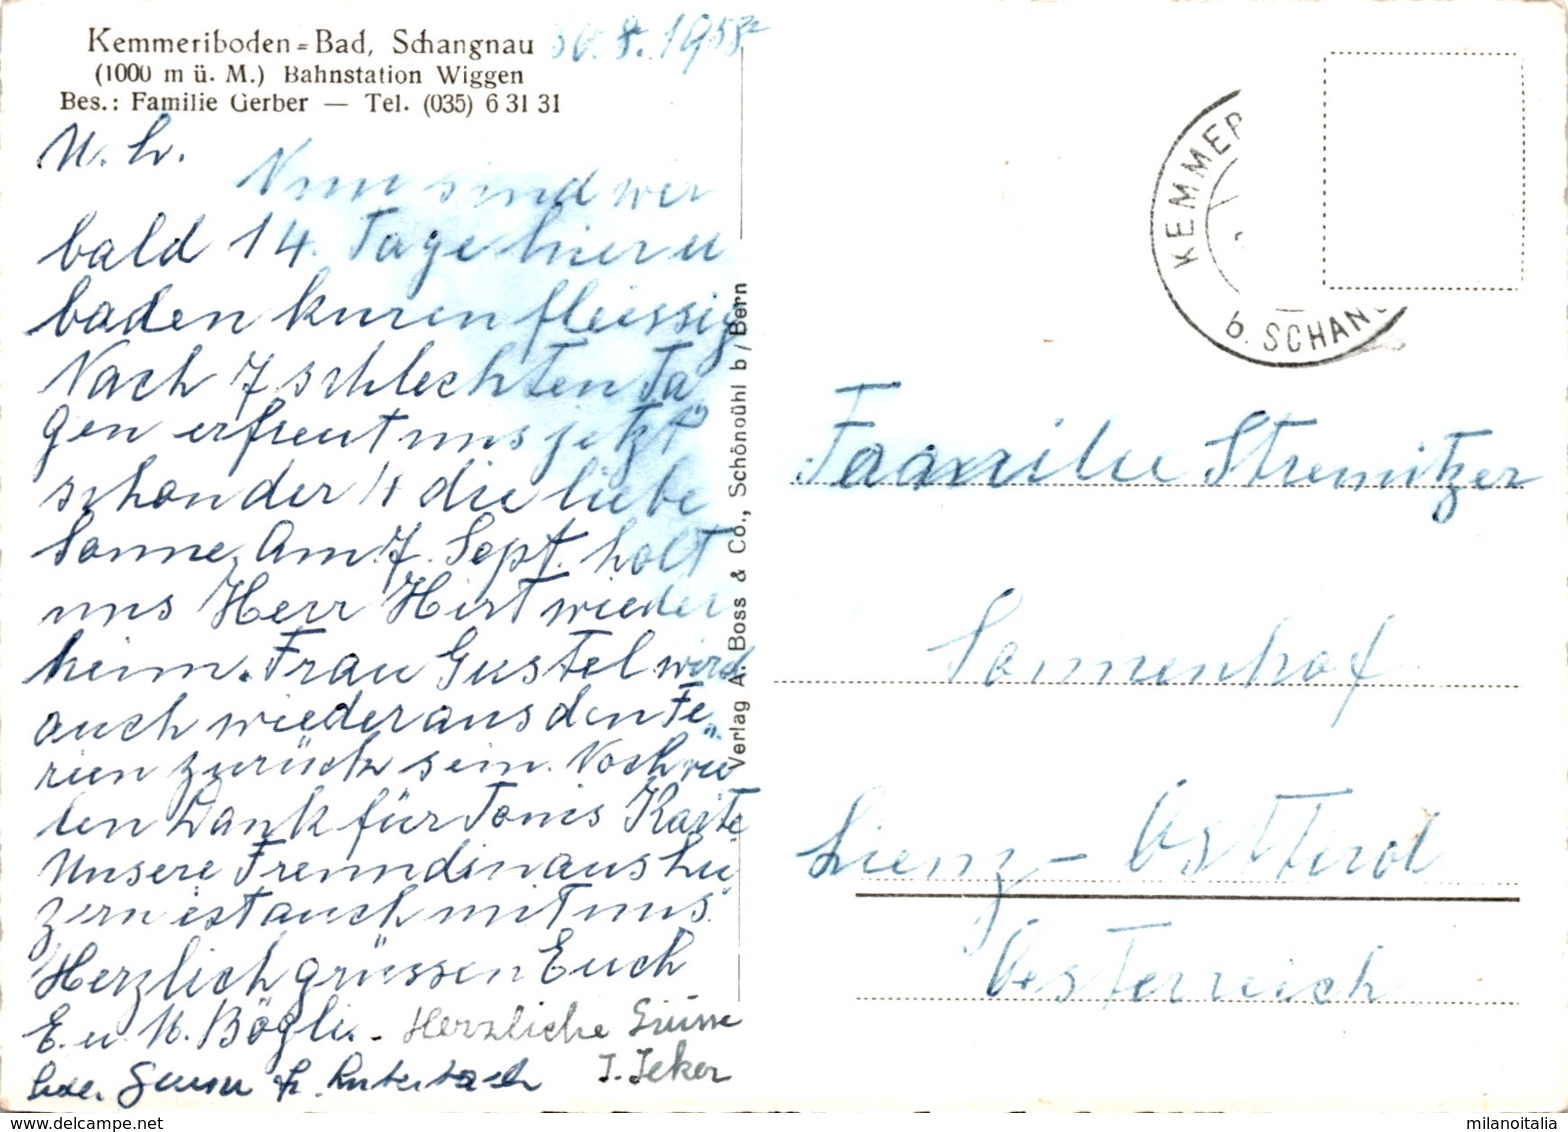 Kemmeriboden=Bad, Schangnau
(1000 m ü. M.) Bahnstation Wiggen
Bes.: Familie Gerber — Tel. (035) 6 31 31
30.8.1958
M. L.
Nun sind wir
bald 14. Tage hier u
baden kuren fleissig
Nach 7 schlechten Ta
gen erfreut uns jetzt
schon der 4 die liebe
Sonne, Am 7. Sept. holt
uns Herr Hirt wieder
heim. Frau Gustel wird
auch wieder aus den Fe
rien zurück sein. Noch vie
len Dank für Tonis Karte
Unsere Freundin aus Lu
zern ist auch mit uns.
Herzlich grüssen Euch
E. u. M. Bögli. - Herzliche Grüsse
J. Jeker
Verlag A. Boss & Co., Schönbühl b/Bern
KEMMER
b. SCHANG
Familie Stremitzer
Sonnenhof
Lienz - Osttirol
Oesterreich
www.delcampe.net
milanoitalia